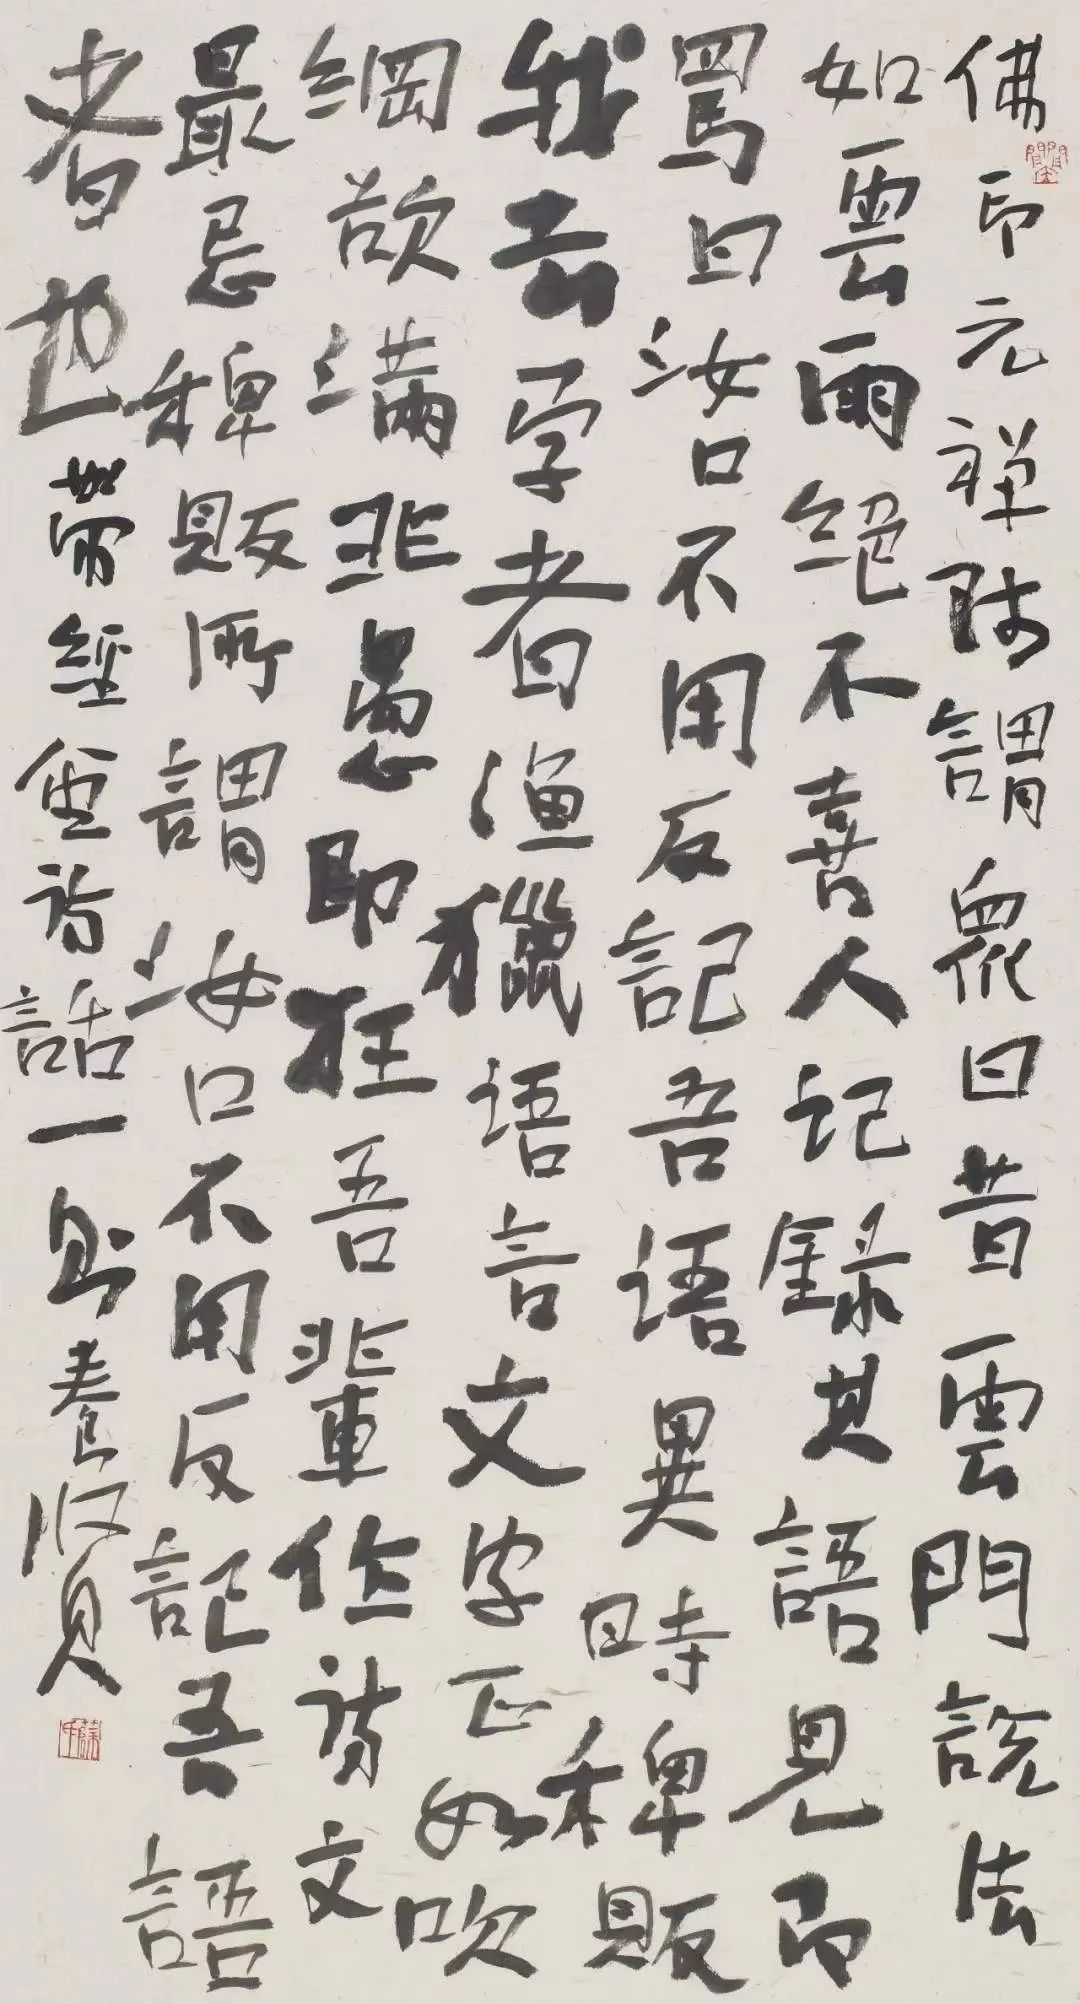 佛印元禅師謂眾曰昔雲門說法
如雲雨絕不喜人记録其語見即
罵曰汝口不用反記吾语異時稗販
我去学者渔獵语言文字正如吹
綱欲满非愚即狂吾輩作诗文
最忌稗販所謂汝口不用反記吾語
者也 帶經堂诗話一則